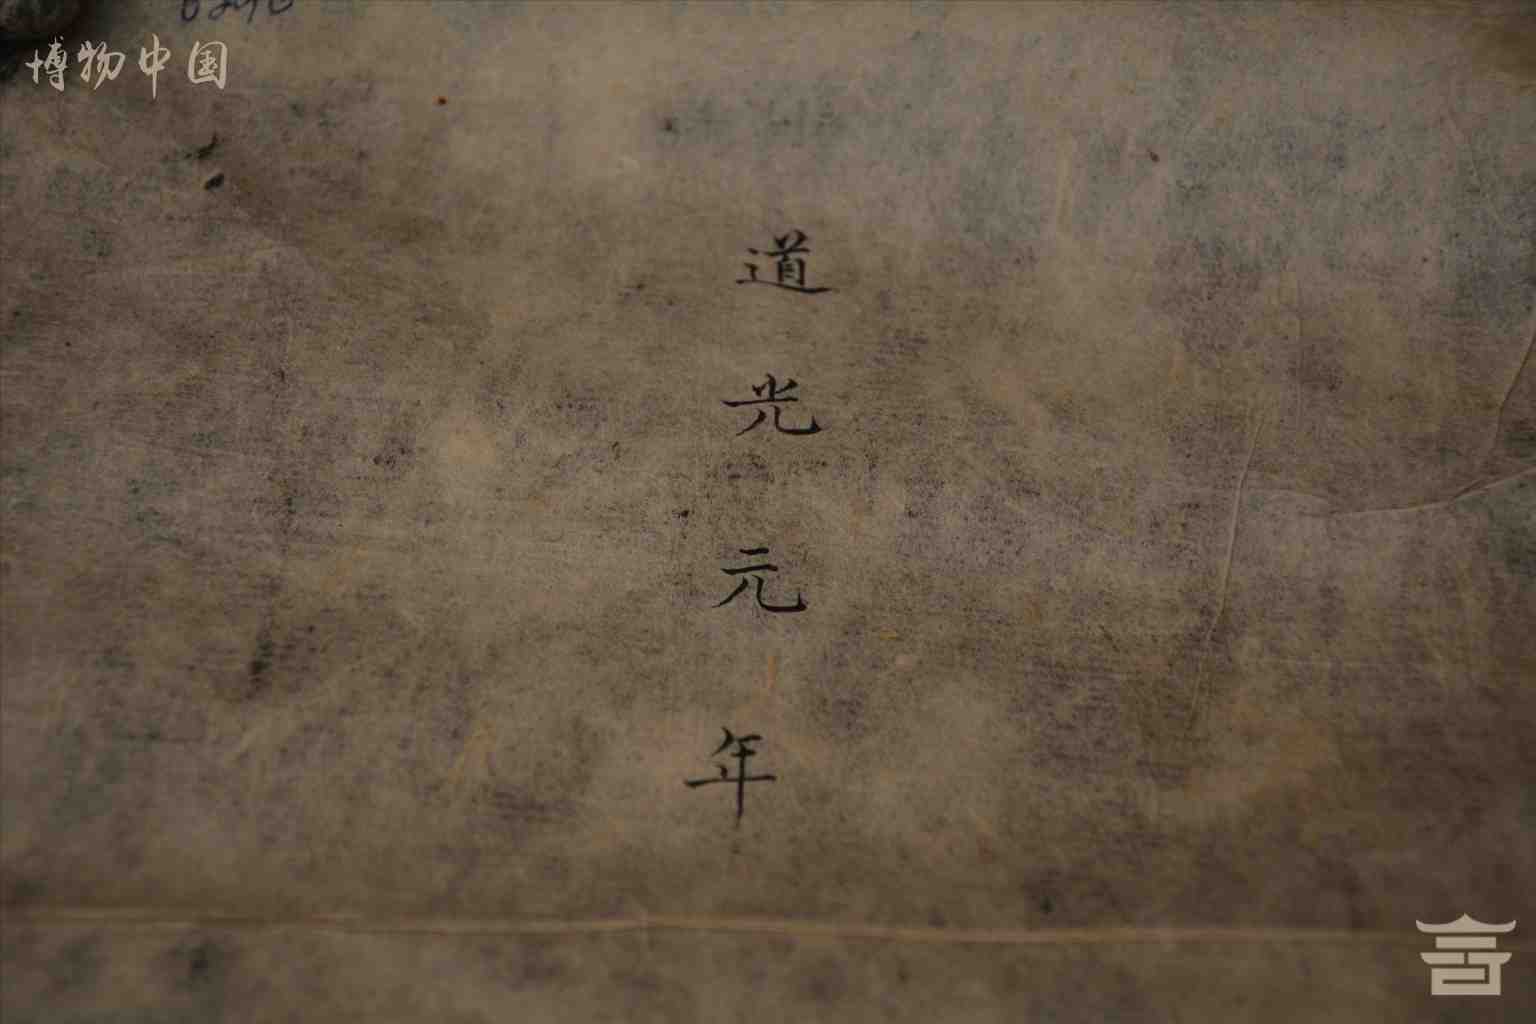 博物中国
道光元年